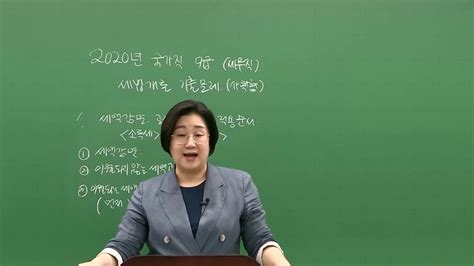 2020년 국가직 9급 (세무직)
세법개론 기출문제 (사책형)
1. 세액감면 적용순서
<소득세
① 세액감면
② 이월되지 않는 세액공
③ 이월되는 세액